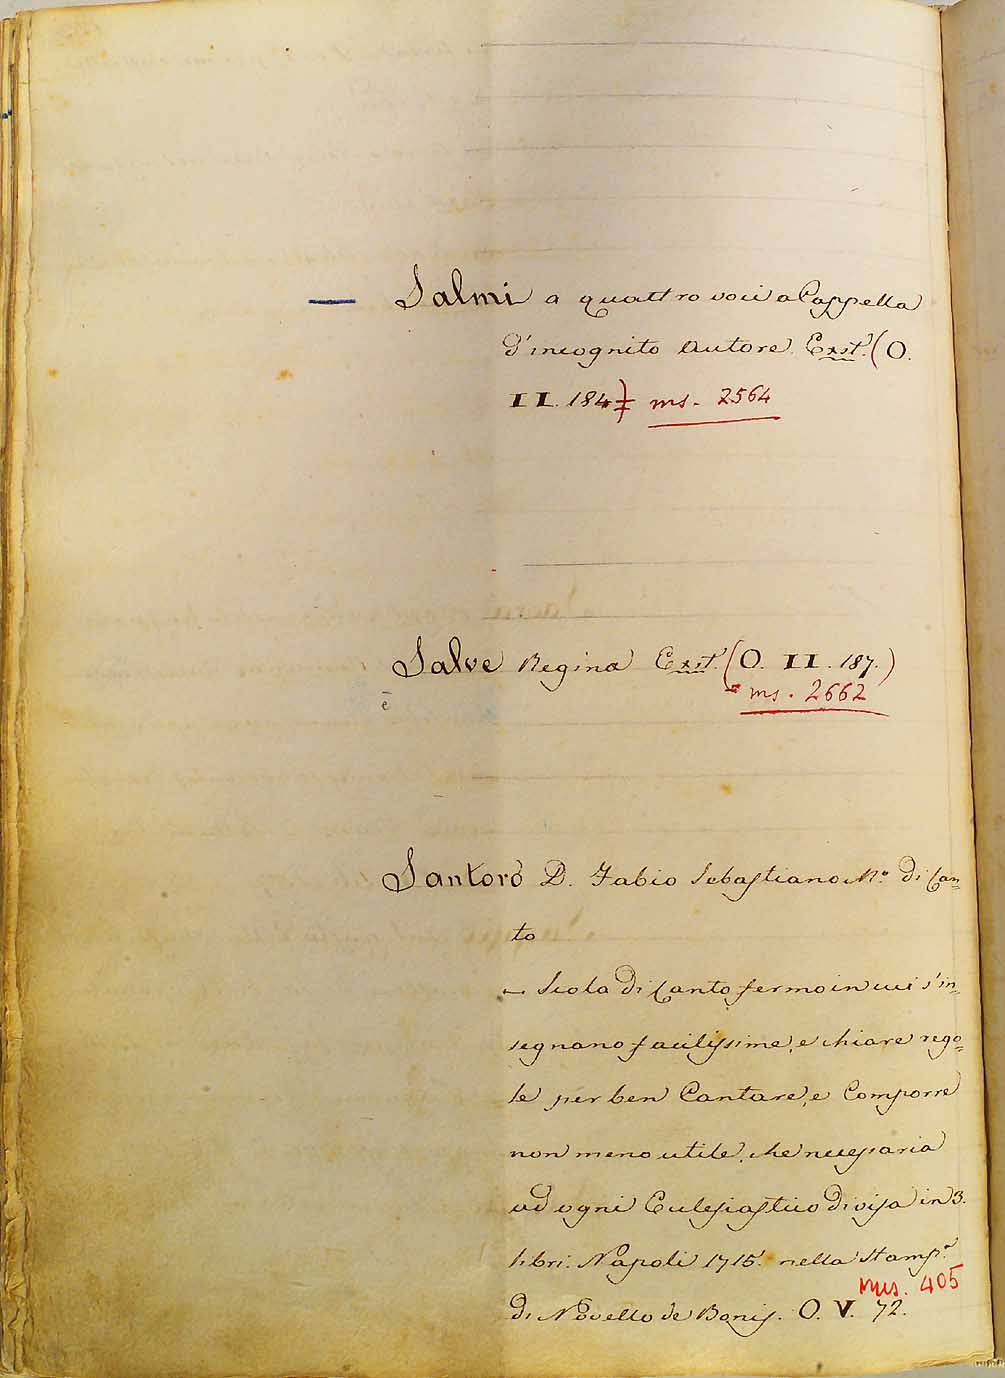 Salmi a quattro voci a Cappella
d'incognito Autore. Exst. (O.
II. 184) ms. 2564
Salve Regina Exst. (O. II. 187.)
ms. 2662
ē
Santoro D. Fabio Sebastiano M.º di Can=
to
— Scola di Canto fermo in cui s'in=
segnano facilissime, e chiare rego=
le per ben Cantare, e Comporre
non meno utile, che necessaria
ad ogni Eclesiastico divisa in 3.
libri. Napoli 1715. nella Stamp.ª
mus. 405
di Novello de Bonis. O. V. 72.